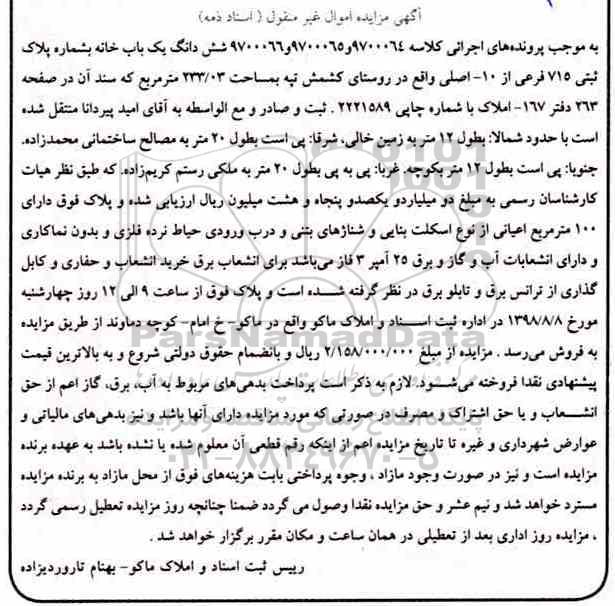 آگهی مزایده اموال غیر منقول ( اسناد ذمه)
به موجب پرونده‌های اجرائی کلاسه ۹۷۰۰۰۶۴و۹۷۰۰۰۶۵و۹۷۰۰۰۶۶ شش دانگ یک باب خانه بشماره پلاک
ثبتی ۷۱۵ فرعی از ۱۰- اصلی واقع در روستای کشمش تپه بمساحت ۲۳۳/۰۳ مترمربع که سند آن در صفحه
۳۶۳ دفتر ۱۶۷- املاک با شماره چاپی ۲۲۲۱۵۸۹ . ثبت و صادر و مع الواسطه به آقای امید پیردانا منتقل شده
است با حدود شمالا: بطول ۱۲ متر به زمین خالی، شرقا: پی است بطول ۲۰ متر به مصالح ساختمانی محمدزاده.
جنوبا: پی است بطول ۱۲ متر بکوچه. غربا: پی به پی بطول ۲۰ متر به ملکی رستم کریم‌زاده. که طبق نظر هیات
کارشناسان رسمی به مبلغ دو میلیاردو یکصدو پنجاه و هشت میلیون ریال ارزیابی شده و پلاک فوق دارای
۱۰۰ مترمربع اعیانی از نوع اسکلت بنایی و شناژهای بتنی و درب ورودی حیاط نرده فلزی و بدون نماکاری
و دارای انشعابات آب و گاز و برق ۲۵ آمپر ۳ فاز می‌باشد برای انشعاب برق خرید انشعاب و حفاری و کابل
گذاری از ترانس برق و تابلو برق در نظر گرفته شده است و پلاک فوق از ساعت ۹ الی ۱۲ روز چهارشنبه
مورخ ۱۳۹۸/۸/۸ در اداره ثبت اسناد و املاک ماکو واقع در ماکو- خ امام- کوچه دماوند از طریق مزایده
به فروش می‌رسد . مزایده از مبلغ ۲/۱۵۸/۰۰۰/۰۰۰ ریال و بانضمام حقوق دولتی شروع و به بالاترین قیمت
پیشنهادی نقدا فروخته می‌شود. لازم به ذکر است پرداخت بدهی‌های مربوط به آب، برق، گاز اعم از حق
انشعاب و یا حق اشتراک و مصرف در صورتی که مورد مزایده دارای آنها باشد و نیز بدهی‌های مالیاتی و
عوارض شهرداری و غیره تا تاریخ مزایده اعم از اینکه رقم قطعی آن معلوم شده یا نشده باشد به عهده برنده
مزایده است و نیز در صورت وجود مازاد ، وجوه پرداختی بابت هزینه‌های فوق از محل مازاد به برنده مزایده
مسترد خواهد شد و نیم عشر و حق مزایده نقدا وصول می گردد ضمنا چنانچه روز مزایده تعطیل رسمی گردد
، مزایده روز اداری بعد از تعطیلی در همان ساعت و مکان مقرر برگزار خواهد شد .
رییس ثبت اسناد و املاک ماکو- بهنام تاروردیزاده
ParsNamadData
۰۲۱-۸۸۳۴۹۶۷۰-۵